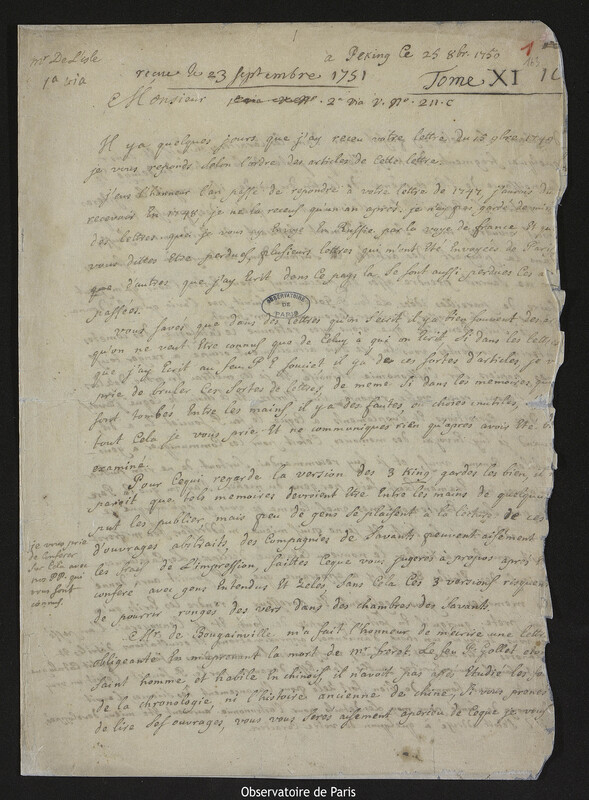 mr De L'isle
1a via
a Peking Ce 25 8bre 1750
1
163
reçue le 23 Septembre 1751
Tome XI
Monsieur
2a via v. No. 211. C
Il ya quelques jours que j'ay receu votre lettre du
je vous reponds selon l'ordre des articles de Cette lettre.
j'eus l'honneur l'an passé de repondre à votre lettre de 1747
recevoir En 1748. je ne la receus qu'un an après. je n'ay pas gardé de
des lettres que je vous ay Envoyé En Russie, par la voye de france
vous dittes être perdues, plusieurs lettres qui m'ont Eté Envoyées de Paris
que d'autres que j'ay Ecrit dans ce pays la Se sont aussi perdues
passées.
OBSERVATOIRE DE PARIS
vous savés que dans des Lettres qu'on s'ecrit il y a très souvent des
qu'on ne veut être connus que de Celuy à qui on Ecrit, Si dans les lettres
que j'ay Ecrit au feu P. E. Souciet il ya des ces sortes d'articles, je
prie de bruler Ces Sortes de lettres, de meme Si dans les memoires
sont tombés Entre les mains il ya des fautes, ou choses inutiles,
tout Cela je vous prie, Et ne communiqués rien qu'après avoir Eté
examiné.
Pour Cequi regarde la version des 3 King gardés les bien, il
paroit que tels memoires devroient être Entre les mains de quelqu'un
put les publier, mais peu de gens se plaisent à la lecture de ces
d'ouvrages abstraits, des Compagnies de Savants peuvent aisement
les frais de L'impression, faittes Ceque vous jugerés à propos après
conferé avec gens Entendus Et Zelés, Sans Cela Ces 3 versions risquent
de pourrir rongés des vers dans des chambres des Savants.
je vous prie
de Conferer
Sur Cela avec
nos PP. qui
vous sont
connus.
Mr. de Bougainville m'a fait l'honneur de m'ecrire une lettre
obligeante En m'aprenant la mort de mr freret. Le feu P. Gollet
Saint homme, Et habile En chinois il n'avoit pas assés Etudié les
de la chronologie, ni l'histoire ancienne de chine; Si vous prenés
de lire Ses ouvrages, vous vous serés aisement aperceu de Ceque je vous
Observatoire de Paris